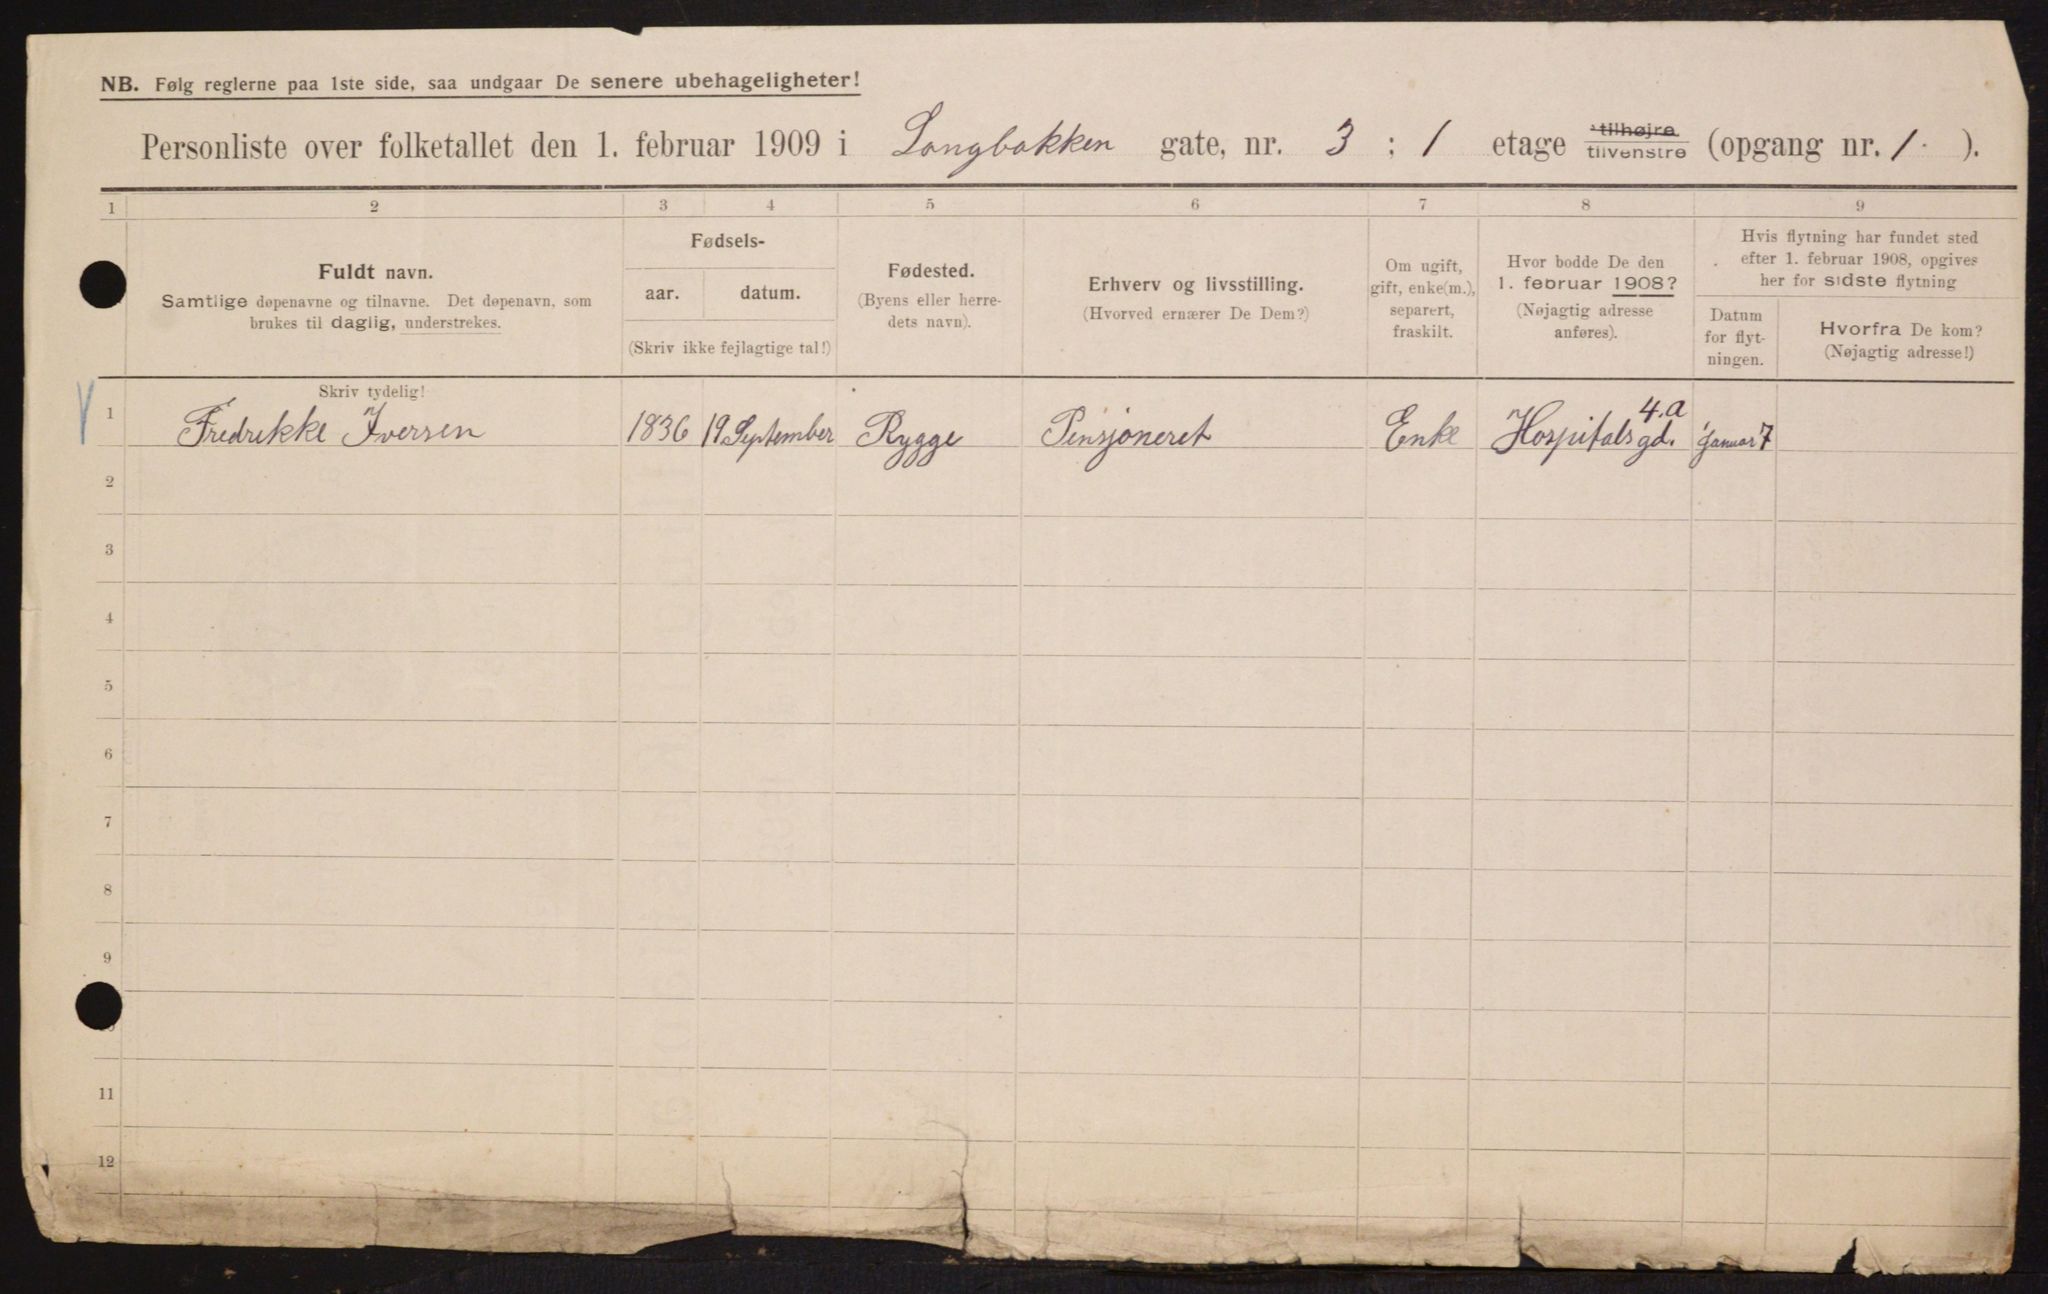 NB. Følg reglerne paa 1ste side, saa undgaar De senere ubehageligheter!
Personliste over folketallet den 1. februar 1909 i Langbakken gate, nr. 3 ; 1 etage tilhøjre tilvenstre (opgang nr. 1. ).
1 2 3 4 5 6 7 8 9
Fuldt navn.
Samtlige døpenavne og tilnavne. Det døpenavn, som
brukes til daglig, understrekes.
Fødsels-
aar. datum.
(Skriv ikke fejlagtige tal!)
Fødested.
(Byens eller herre-
dets navn).
Erhverv og livsstilling.
(Hvorved ernærer De Dem?)
Om ugift,
gift, enke(m.),
separert,
fraskilt.
Hvor bodde De den
1. februar 1908?
(Nøjagtig adresse
anføres).
Hvis flytning har fundet sted
efter 1. februar 1908, opgives
her for sidste flytning
Datum
for flyt-
ningen.
Hvorfra De kom?
(Nøjagtig adresse!)
Skriv tydelig!
1 Fredrikke Iversen 1836 19 September Rygge Pensjoneret Enke Hospitalsgd. 4.a Januar 7
2
3
4
5
6
7
8
9
11
12